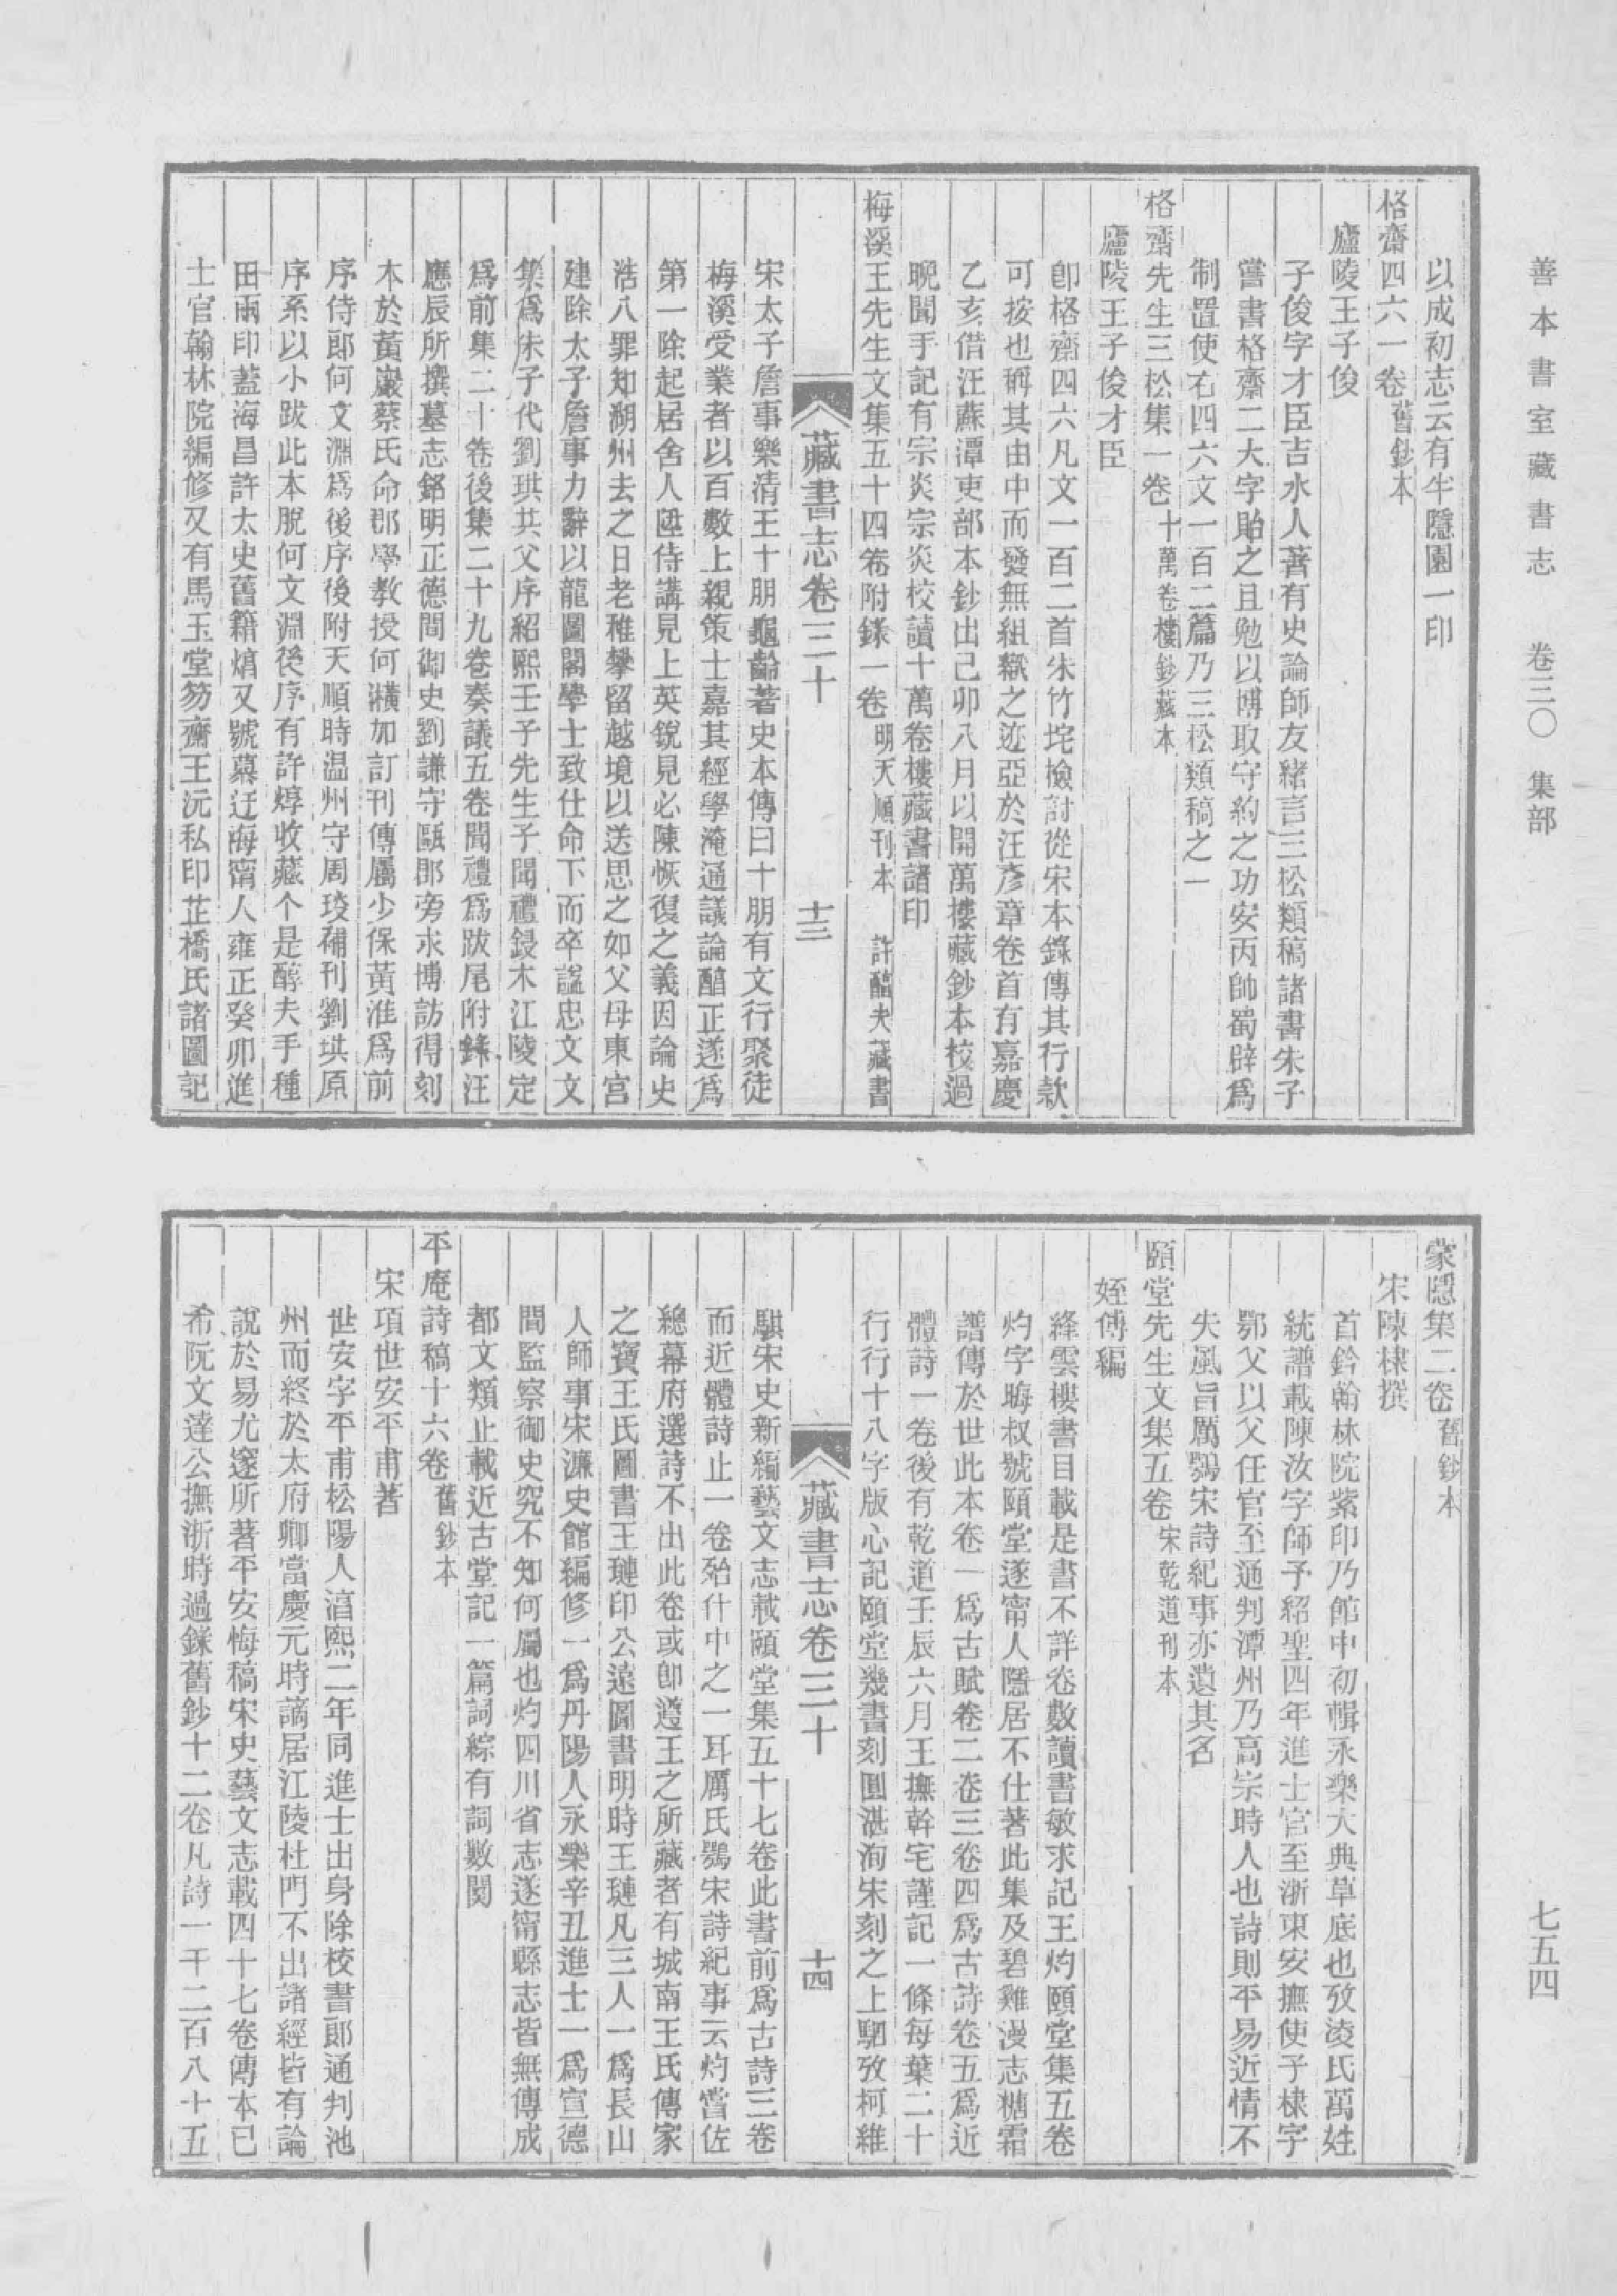 善本書室藏書志　卷三〇　集部
七五四
以成初志云有半隱園一印
格齋四六一卷舊鈔本
廬陵王子俊
子俊字才臣吉水人著有史論師友緒言三松類稿諸書朱子
嘗書格齋二大字貽之且勉以博取守約之功安丙帥蜀辟爲
制置使右四六文一百二篇乃三松類稿之一
格齋先生三松集一卷十萬卷樓鈔藏本
廬陵王子俊才臣
卽格齋四六凡文一百二首朱竹垞檢討從宋本錄傳其行款
可按也稱其由中而發無組織之迹亞於汪彥章卷首有嘉慶
乙亥借汪蘇潭吏部本鈔出己卯八月以開萬樓藏鈔本校過
晚聞手記有宗炎宗炎校讀十萬卷樓藏書諸印
梅溪王先生文集五十四卷附錄一卷明天順刊本　許醇夫藏書
藏書志卷三十　十三
宋太子詹事樂清王十朋龜齡著史本傳曰十朋有文行聚徒
梅溪受業者以百數上親策士嘉其經學淹通議論醇正遂爲
第一除起居舍人陞侍講見上英銳見必陳恢復之義因論史
浩八罪知湖州去之日老稚攀留越境以送思之如父母東宮
建除太子詹事力辭以龍圖閣學士致仕命下而卒諡忠文文
集爲朱子代劉珙共父序紹熙壬子先生子聞禮鋟木江陵定
爲前集二十卷後集二十九卷奏議五卷聞禮爲跋尾附錄汪
應辰所撰墓志銘明正德間御史劉謙守甌郡旁求博訪得刻
本於黃巖蔡氏命郡學教授何㶇加訂刊傳屬少保黃淮爲前
序侍郎何文淵爲後序後附天順時温州守周琰補刊劉珙原
序系以小跋此本脫何文淵後序有許焞收藏个是醇夫手種
田兩印蓋海昌許太史舊籍焞又號慕迂海甯人雍正癸卯進
士官翰林院編修又有馬玉堂笏齋王沅私印芷橋氏諸圖記
蒙隱集二卷舊鈔本
宋陳棣撰
首鈐翰林院紫印乃館中初輯永樂大典草底也攷淩氏萬姓
統譜載陳汝字師予紹聖四年進士官至浙東安撫使子棣字
鄂父以父任官至通判潭州乃高宗時人也詩則平易近情不
失風旨厲鶚宋詩紀事亦遺其名
頤堂先生文集五卷宋乾道刊本
姪傅編
絳雲樓書目載是書不詳卷數讀書敏求記王灼頤堂集五卷
灼字晦叔號頤堂遂甯人隱居不仕著此集及碧雞漫志糖霜
譜傳於世此本卷一爲古賦卷二卷三卷四爲古詩卷五爲近
體詩一卷後有乾道壬辰六月王撫幹宅謹記一條每葉二十
行行十八字版心記頤堂幾書刻圓湛洵宋刻之上駟攷柯維
藏書志卷三十　十四
騏宋史新編藝文志載頤堂集五十七卷此書前爲古詩三卷
而近體詩止一卷殆什中之一耳厲氏鶚宋詩紀事云灼嘗佐
總幕府選詩不出此卷或卽遵王之所藏者有城南王氏傳家
之寶王氏圖書王璉印公遠圖書明時王璉凡三人一爲長山
人師事宋濂史館編修一爲丹陽人永樂辛丑進士一爲宣德
間監察御史究不知何屬也灼四川省志遂甯縣志皆無傳成
都文類止載近古堂記一篇詞綜有詞數闋
平庵詩稿十六卷舊鈔本
宋項世安平甫著
世安字平甫松陽人淳熙二年同進士出身除校書郎通判池
州而終於太府卿當慶元時謫居江陵杜門不出諸經皆有論
說於易尤邃所著平安悔稿宋史藝文志載四十七卷傳本已
希阮文達公撫浙時過錄舊鈔十二卷凡詩一千二百八十五